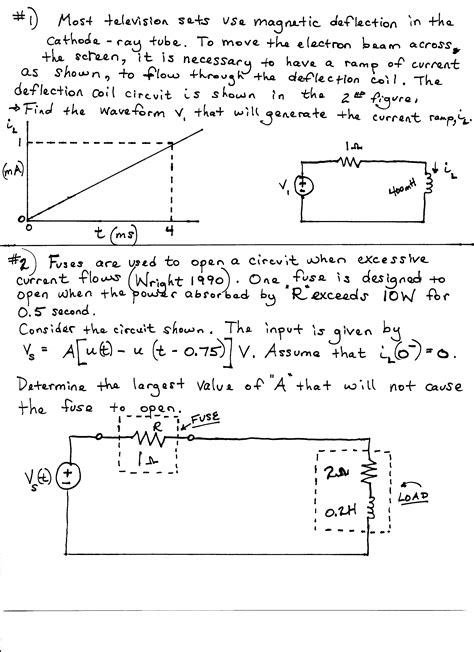 #1) Most television sets use magnetic deflection in the
cathode-ray tube. To move the electron beam across
the screen, it is necessary to have a ramp of current
as shown, to flow through the deflection coil. The
deflection coil circuit is shown in the 2nd figure.
→ Find the waveform V₁ that will generate the current ramp, i_L.
i_L
1
(mA)
0
0
t (ms)
4
1Ω
V₁
+
-
400mH
i_L
#2) Fuses are used to open a circuit when excessive
current flows (Wright 1990). One fuse is designed to
open when the power absorbed by "R" exceeds 10W for
0.5 second.
Consider the circuit shown. The input is given by
V_s = A[u(t) - u(t-0.75)] V. Assume that i_L(0⁻) = 0.
Determine the largest value of "A" that will not cause
the fuse to open.
FUSE
R
1Ω
V_s(t)
+
-
2Ω
0.2H
LOAD